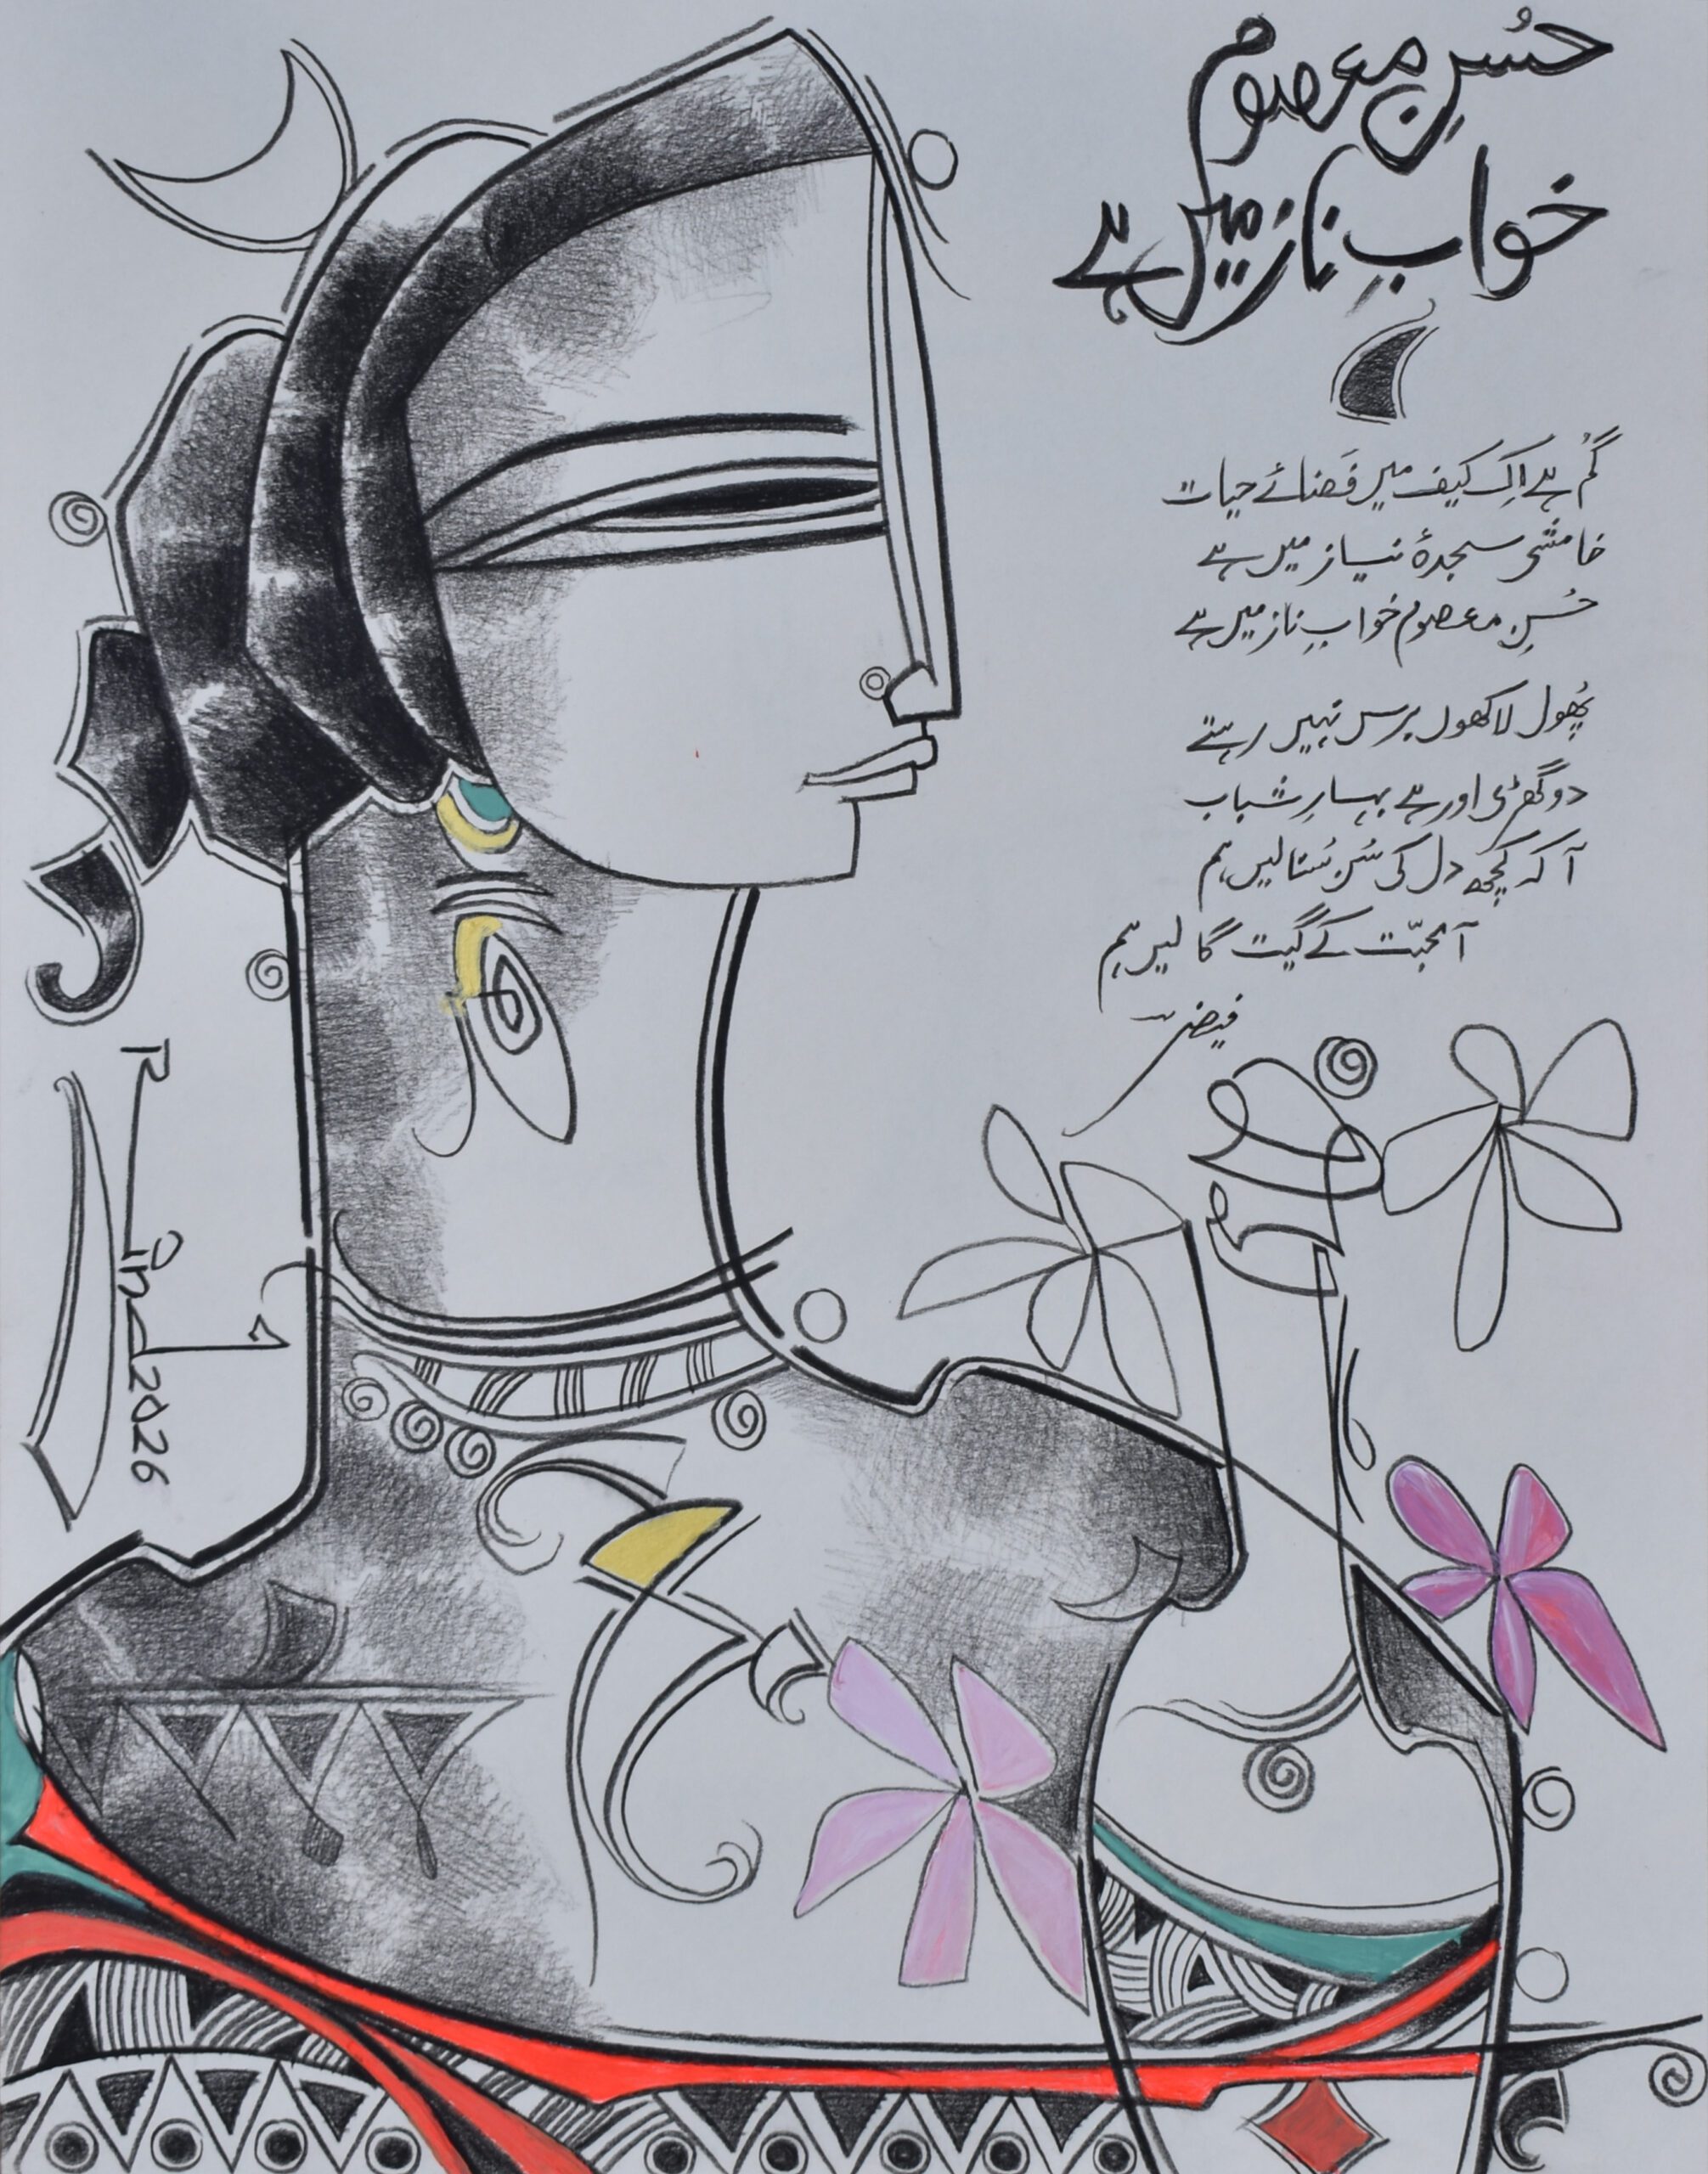 حُسنِ معصوم
خوابِ ناز میں ہے
گُم ہے اِک کیف میں فَضائے حیات
خامشی سجدۂ نیاز میں ہے
حُسنِ معصوم خوابِ ناز میں ہے
پُھول لاکھوں برس نہیں رہتے
دو گھڑی اور ہے بہارِ شباب
آ کہ کچھ دل کی سُن سُنا لیں ہم
آ محبّت کے گیت گا لیں ہم
فیض
Rind 2026